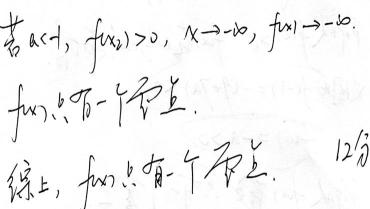 若a<-1, f(x₂)>0, x→-∞, f(x)→-∞.
f(x)只有一个零点.
综上, f(x)只有一个零点. 12分